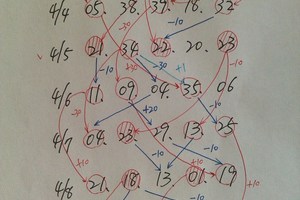 4/4 05. 38. 39. 18. 32
4/5 21. 34. 22. 20. 23
-10 -30 -30 +1 -10
4/6 11. 09. 04. 35. 06
-30 +20 -10
4/7 04. 23. 29. 13. 25
+10 -10 -10 +10
4/8 21. 18. 13. 01. 19
-10 +10